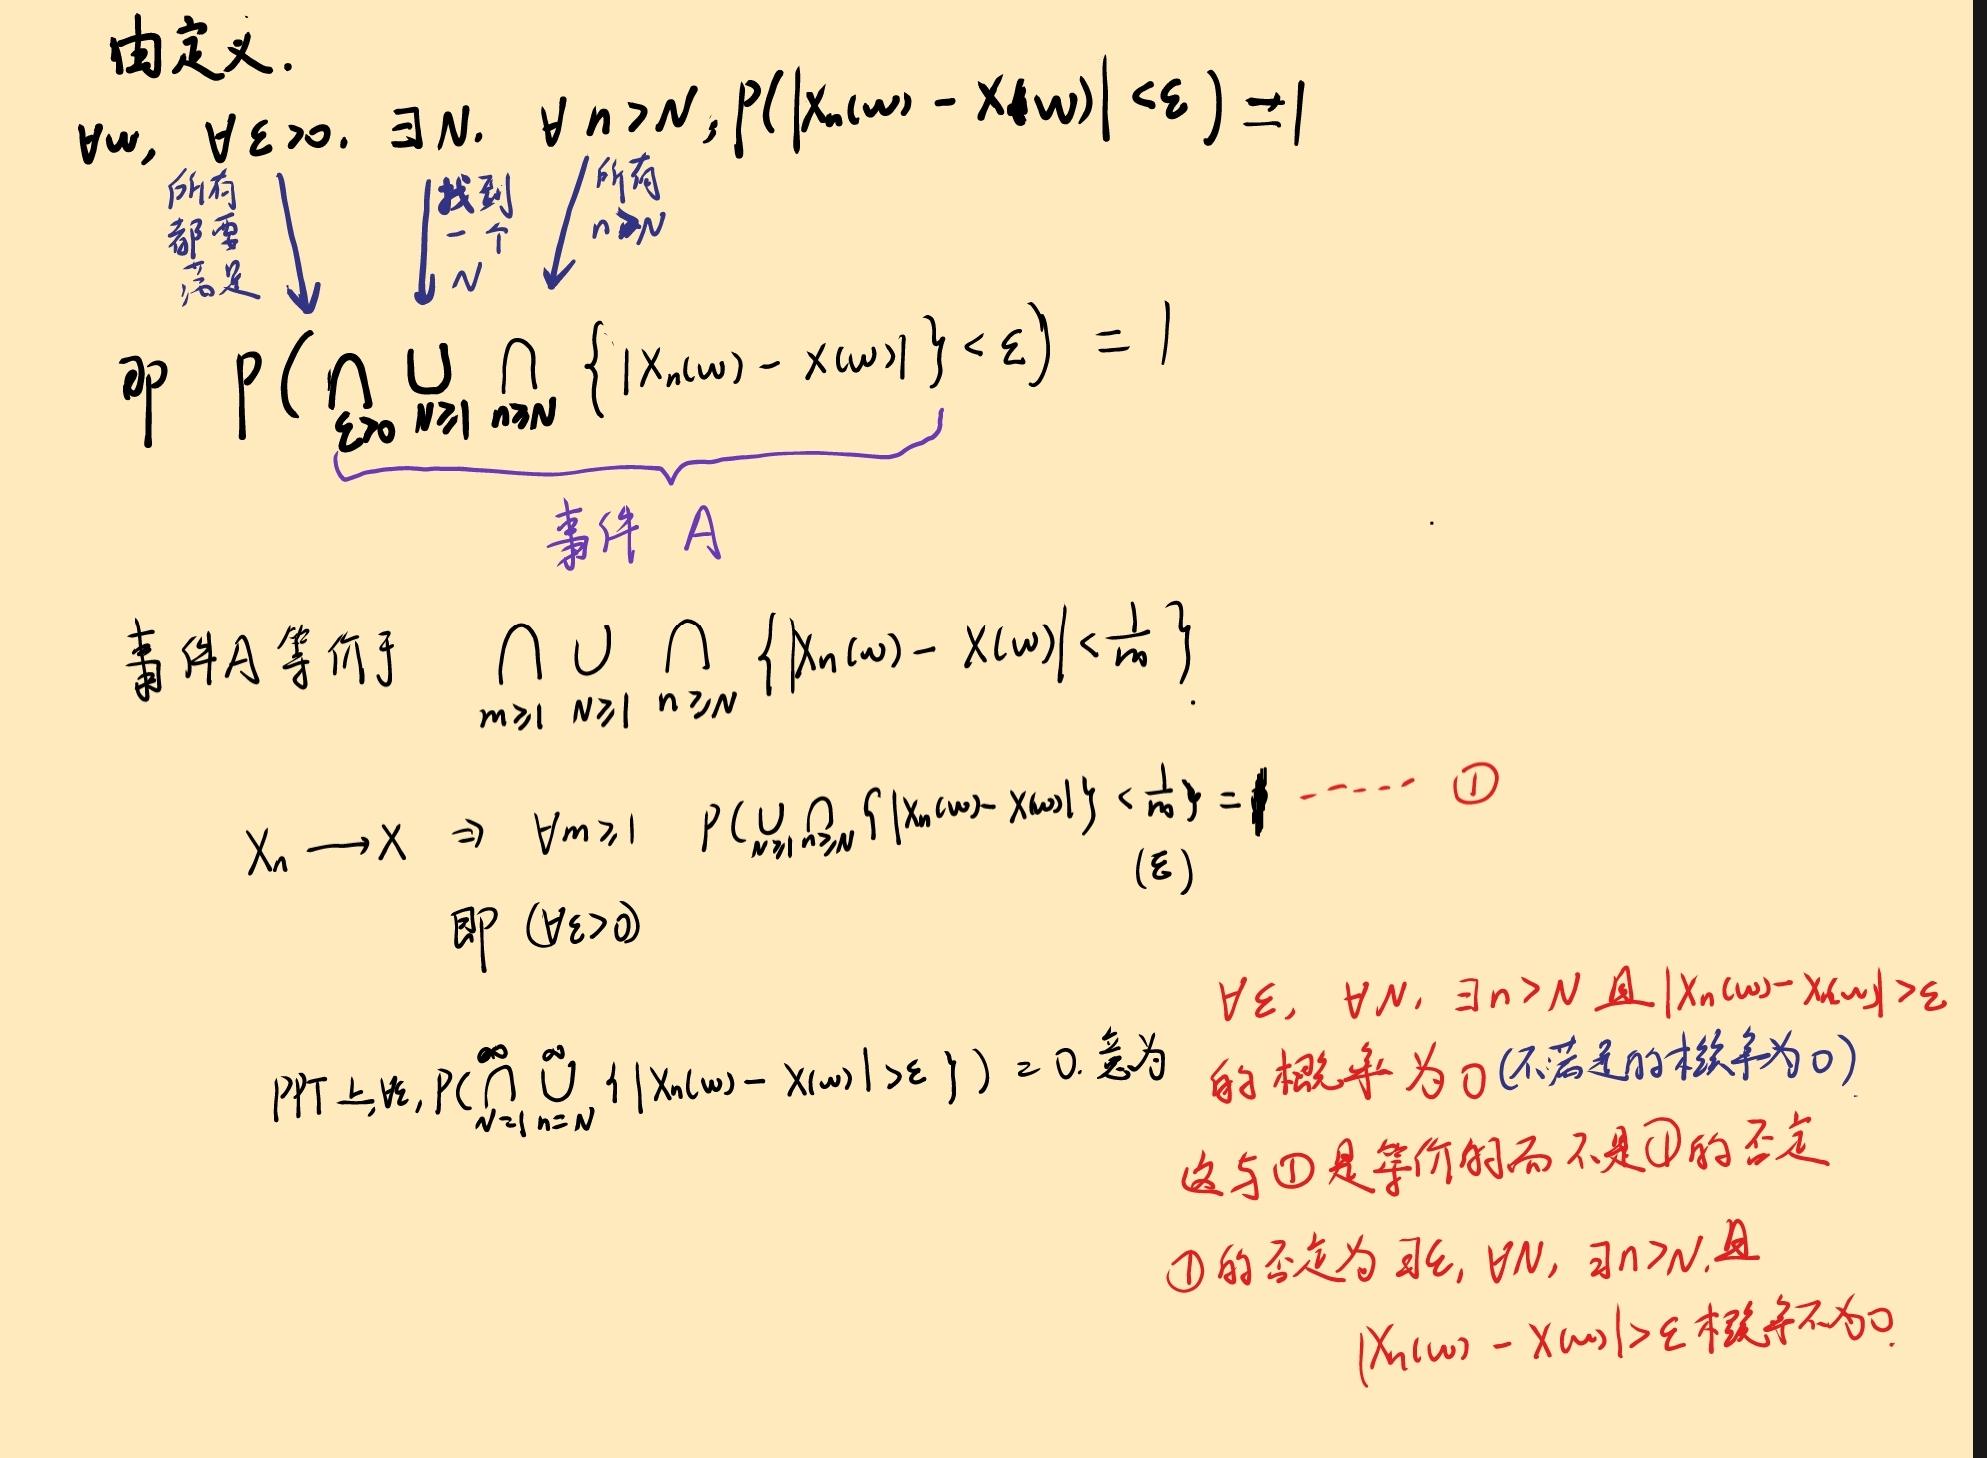 由定义.
∀w, ∀ε>0. ∃N. ∀n>N, P(|Xn(w) - X(w)| <ε) = 1
所有都要满足
找到一个N
所有n≥N
即 P(∩ε>0 ∪N≥1 ∩n≥N {|Xn(w) - X(w)|} < ε) = 1
事件 A
事件A等价于 ∩m≥1 ∪N≥1 ∩n≥N {|Xn(w) - X(w)| < 1/m}.
Xn → X ⇒ ∀m≥1 P(∪N≥1 ∩n≥N {|Xn(w) - X(w)|} < 1/m} = 1 ------ ①
(ε)
即 (∀ε>0)
PPT上,∀ε, P(∩N=1^∞ ∪n=N^∞ {|Xn(w) - X(w)| >ε}) = 0. 意为
∀ε, ∀N. ∃n>N 且|Xn(w) - X(w)| >ε
的概率为0(不满足的概率为0)
这与①是等价的而不是①的否定
①的否定为∃ε, ∀N, ∃n>N.且
|Xn(w) - X(w)|>ε概率不为0.